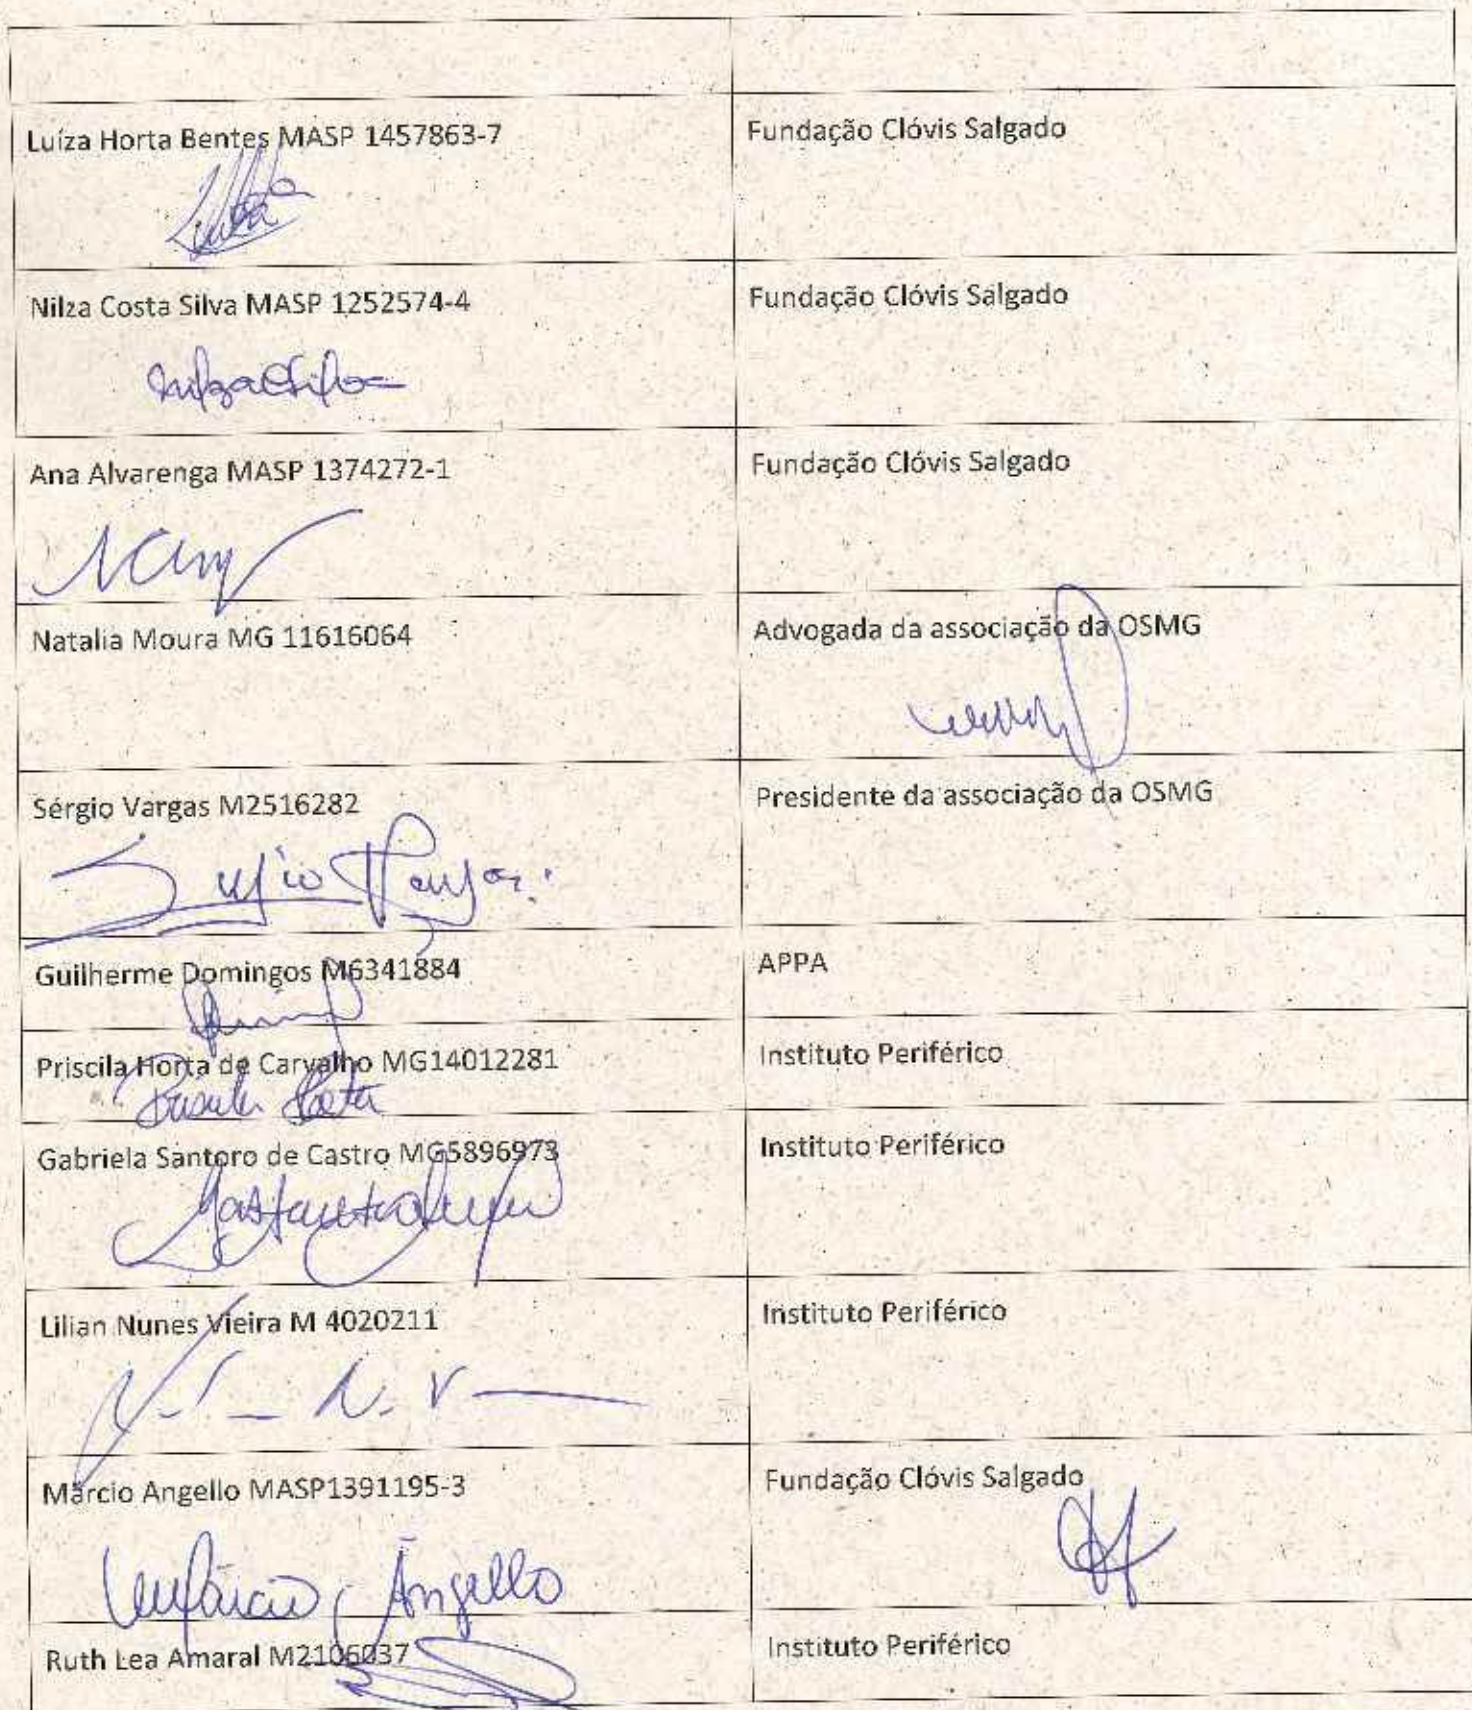 Luíza Horta Bentes MASP 1457863-7
Fundação Clóvis Salgado
Nilza Costa Silva MASP 1252574-4
Fundação Clóvis Salgado
Nilza C Silva
Ana Alvarenga MASP 1374272-1
Fundação Clóvis Salgado
Natalia Moura MG 11616064
Advogada da associação da OSMG
Sérgio Vargas M2516282
Presidente da associação da OSMG
Sergio Vargas
Guilherme Domingos M6341884
APPA
Priscila Horta de Carvalho MG14012281
Instituto Periférico
Priscila Horta
Gabriela Santoro de Castro MG5896973
Instituto Periférico
Lilian Nunes Vieira M 4020211
Instituto Periférico
N. V
Márcio Angello MASP1391195-3
Fundação Clóvis Salgado
Márcio Angello
Ruth Lea Amaral M2106037
Instituto Periférico